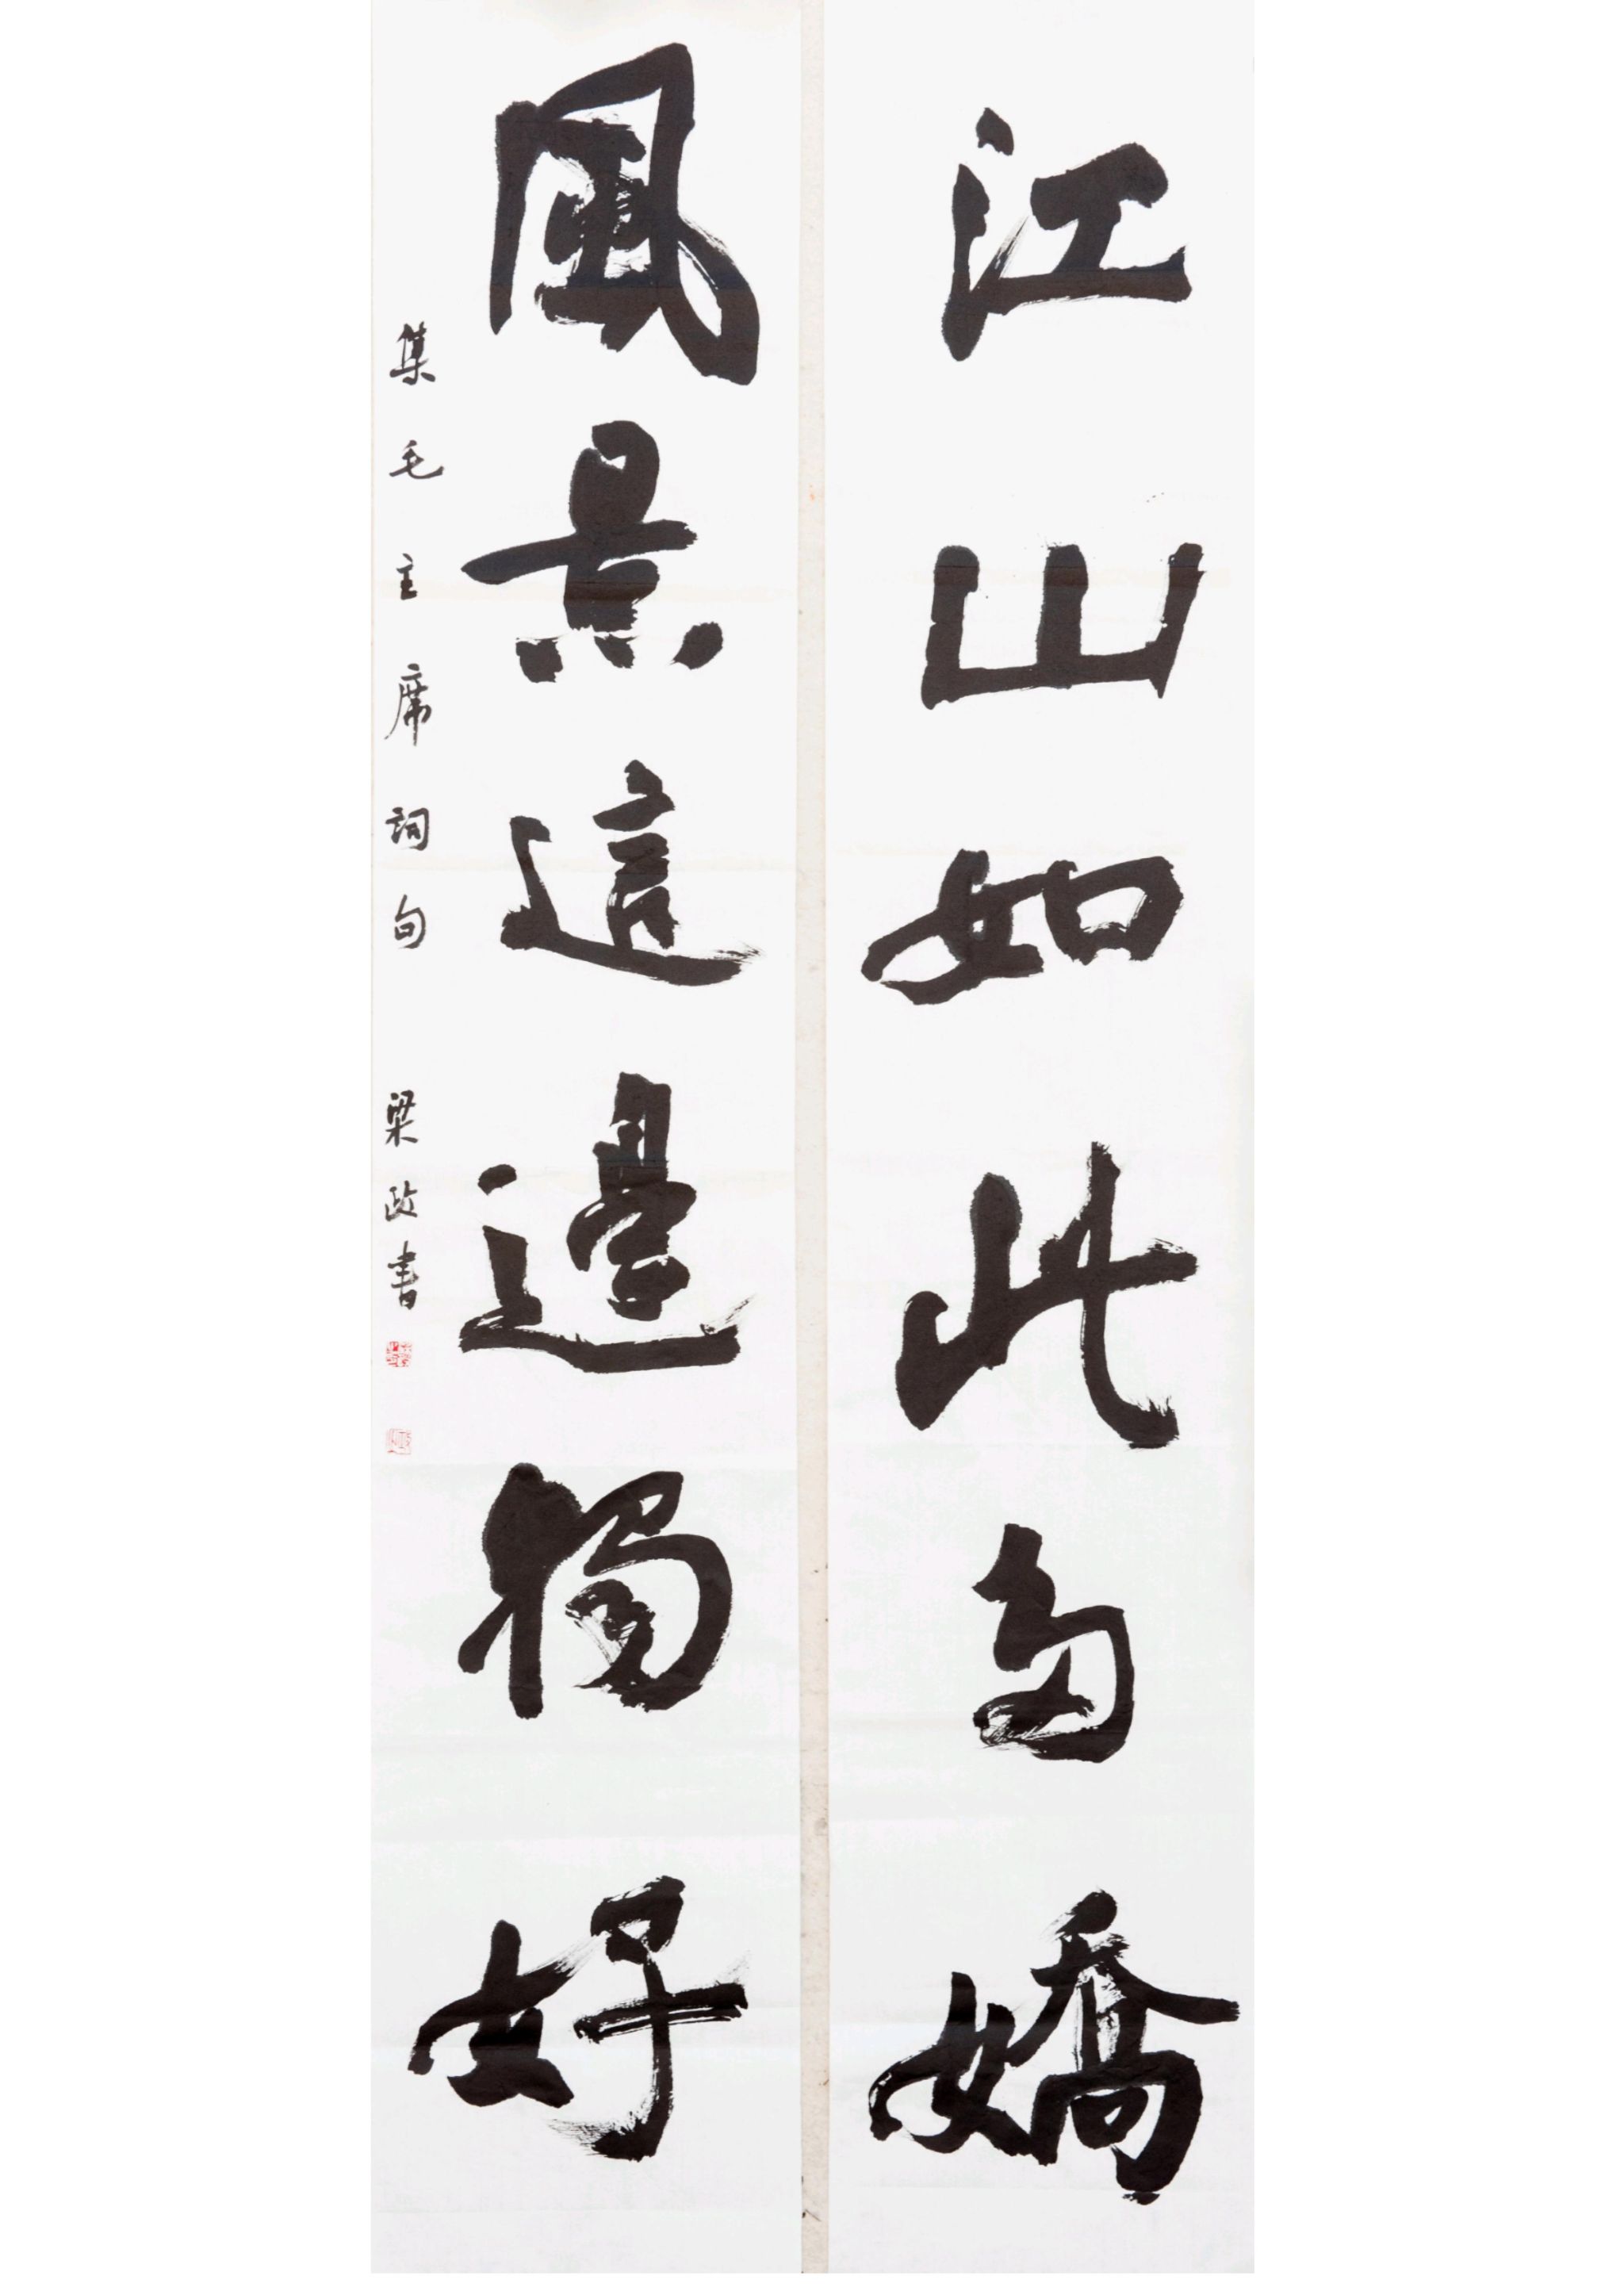 江山如此多嬌
風景這邊獨好
集毛主席詞句 梁政書